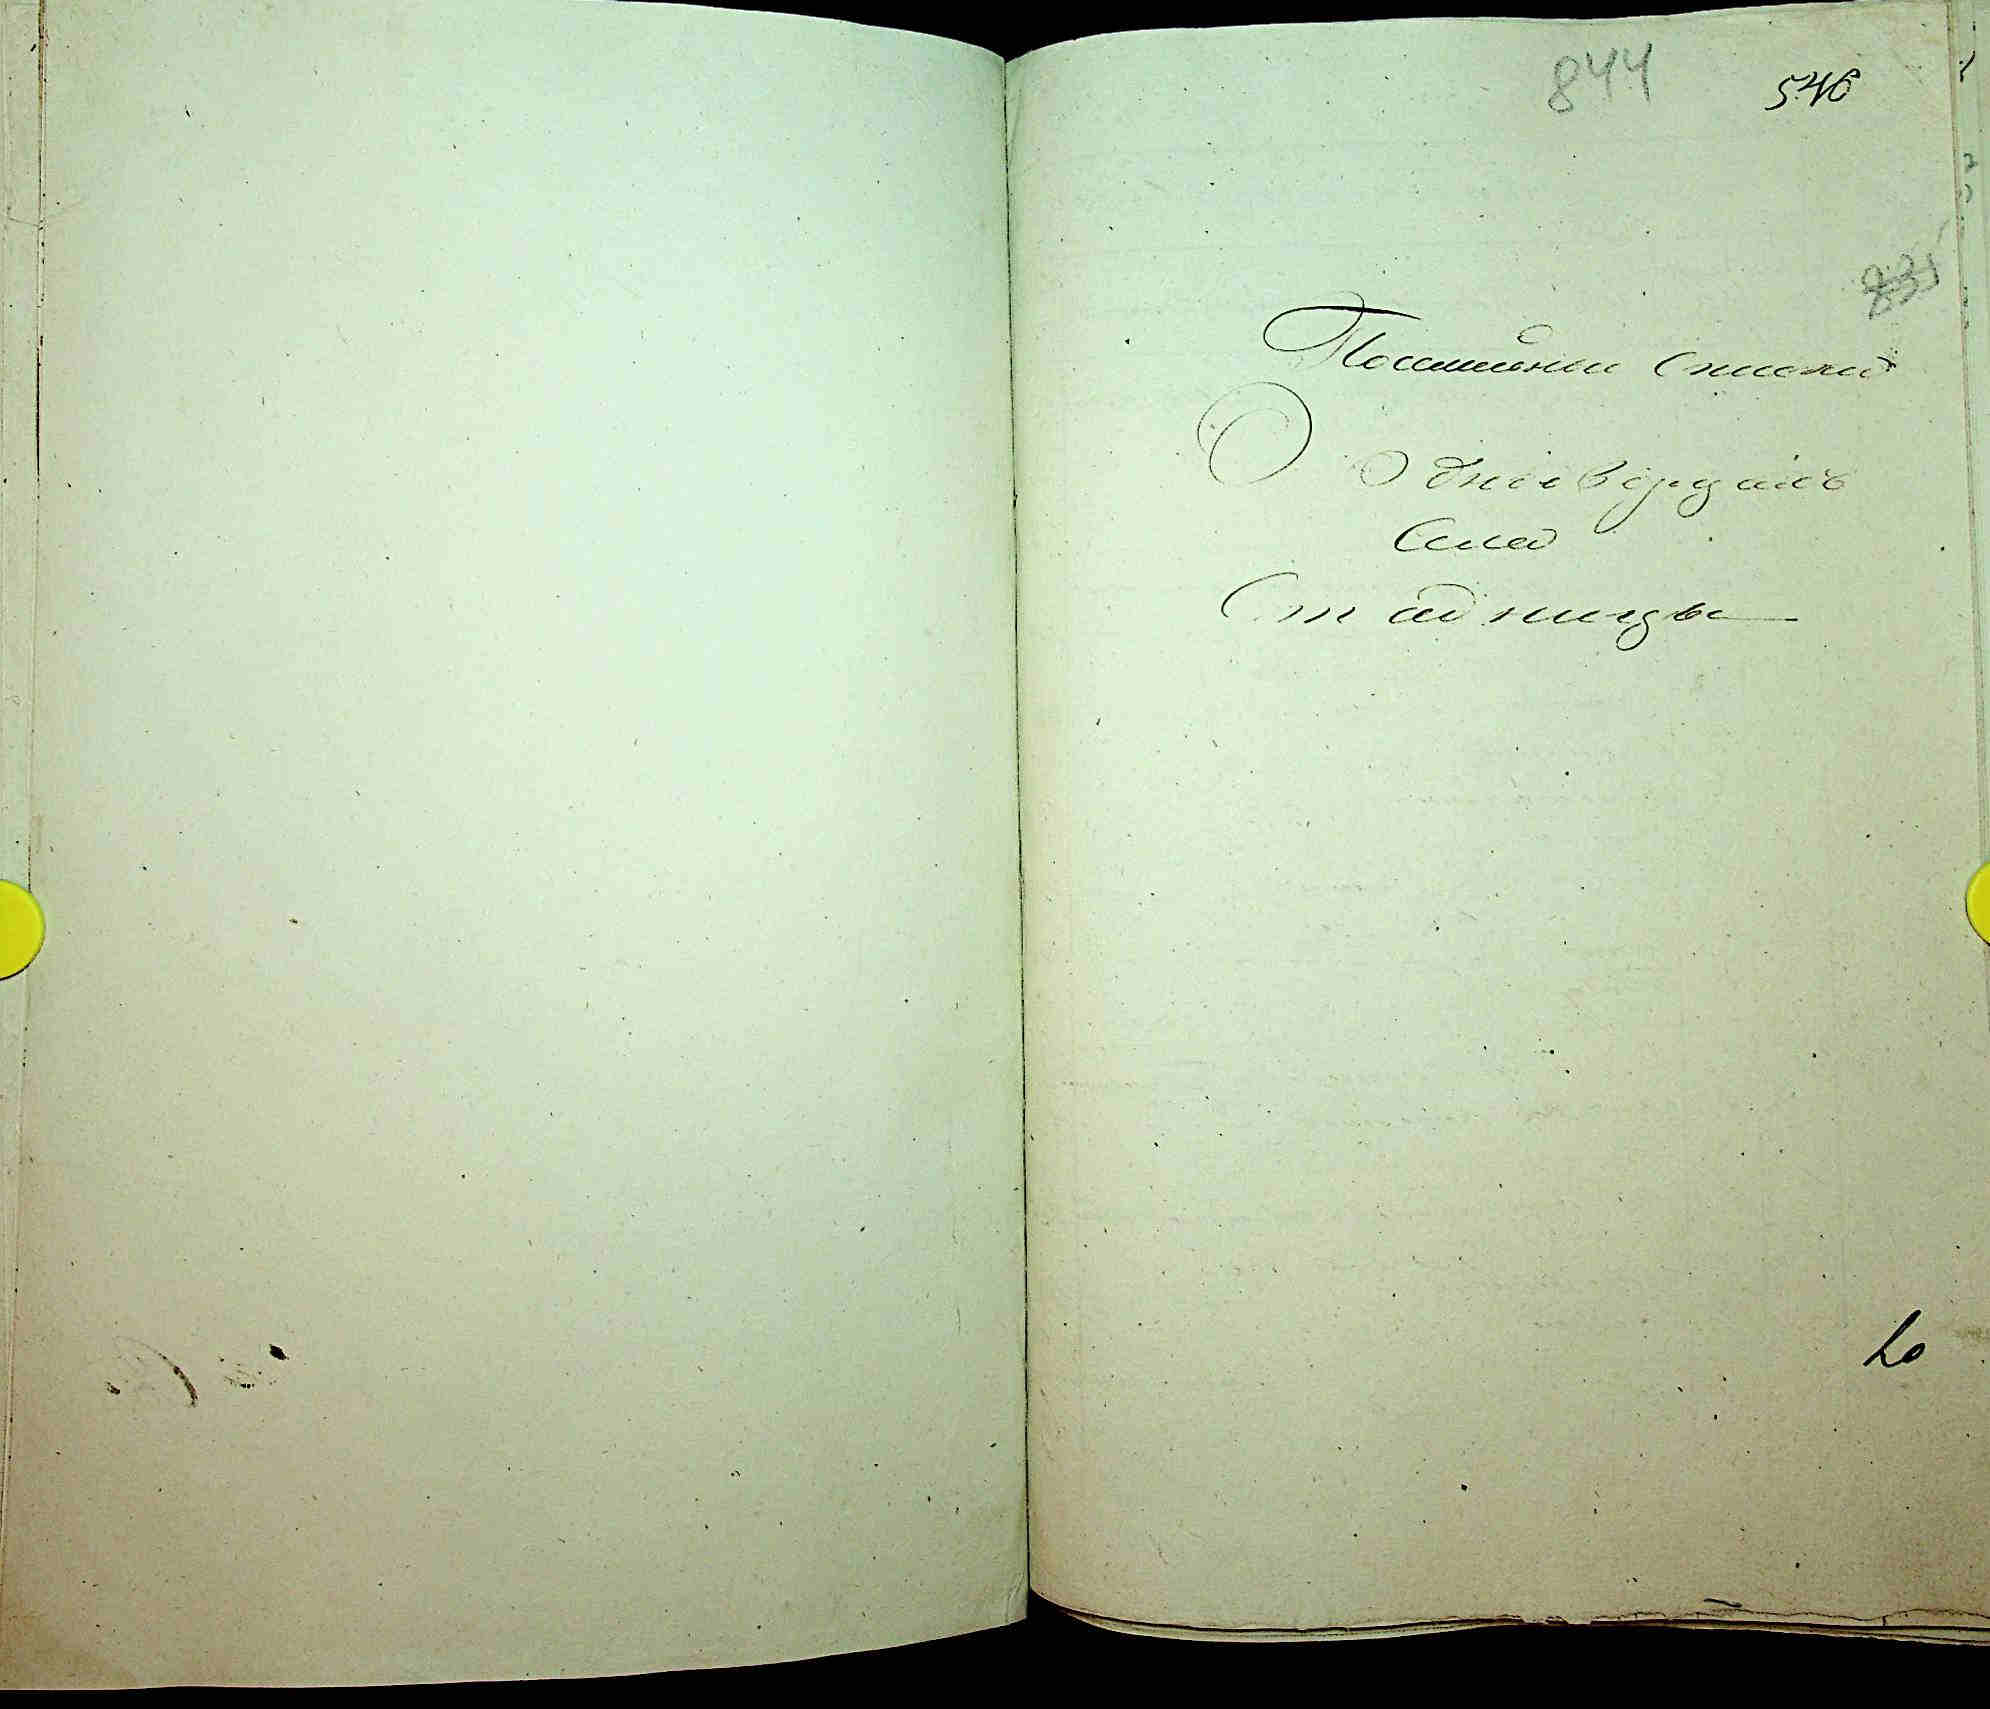 844 546
835
Посемейный Списокъ
О Однодворцахъ
Села
Стадницы